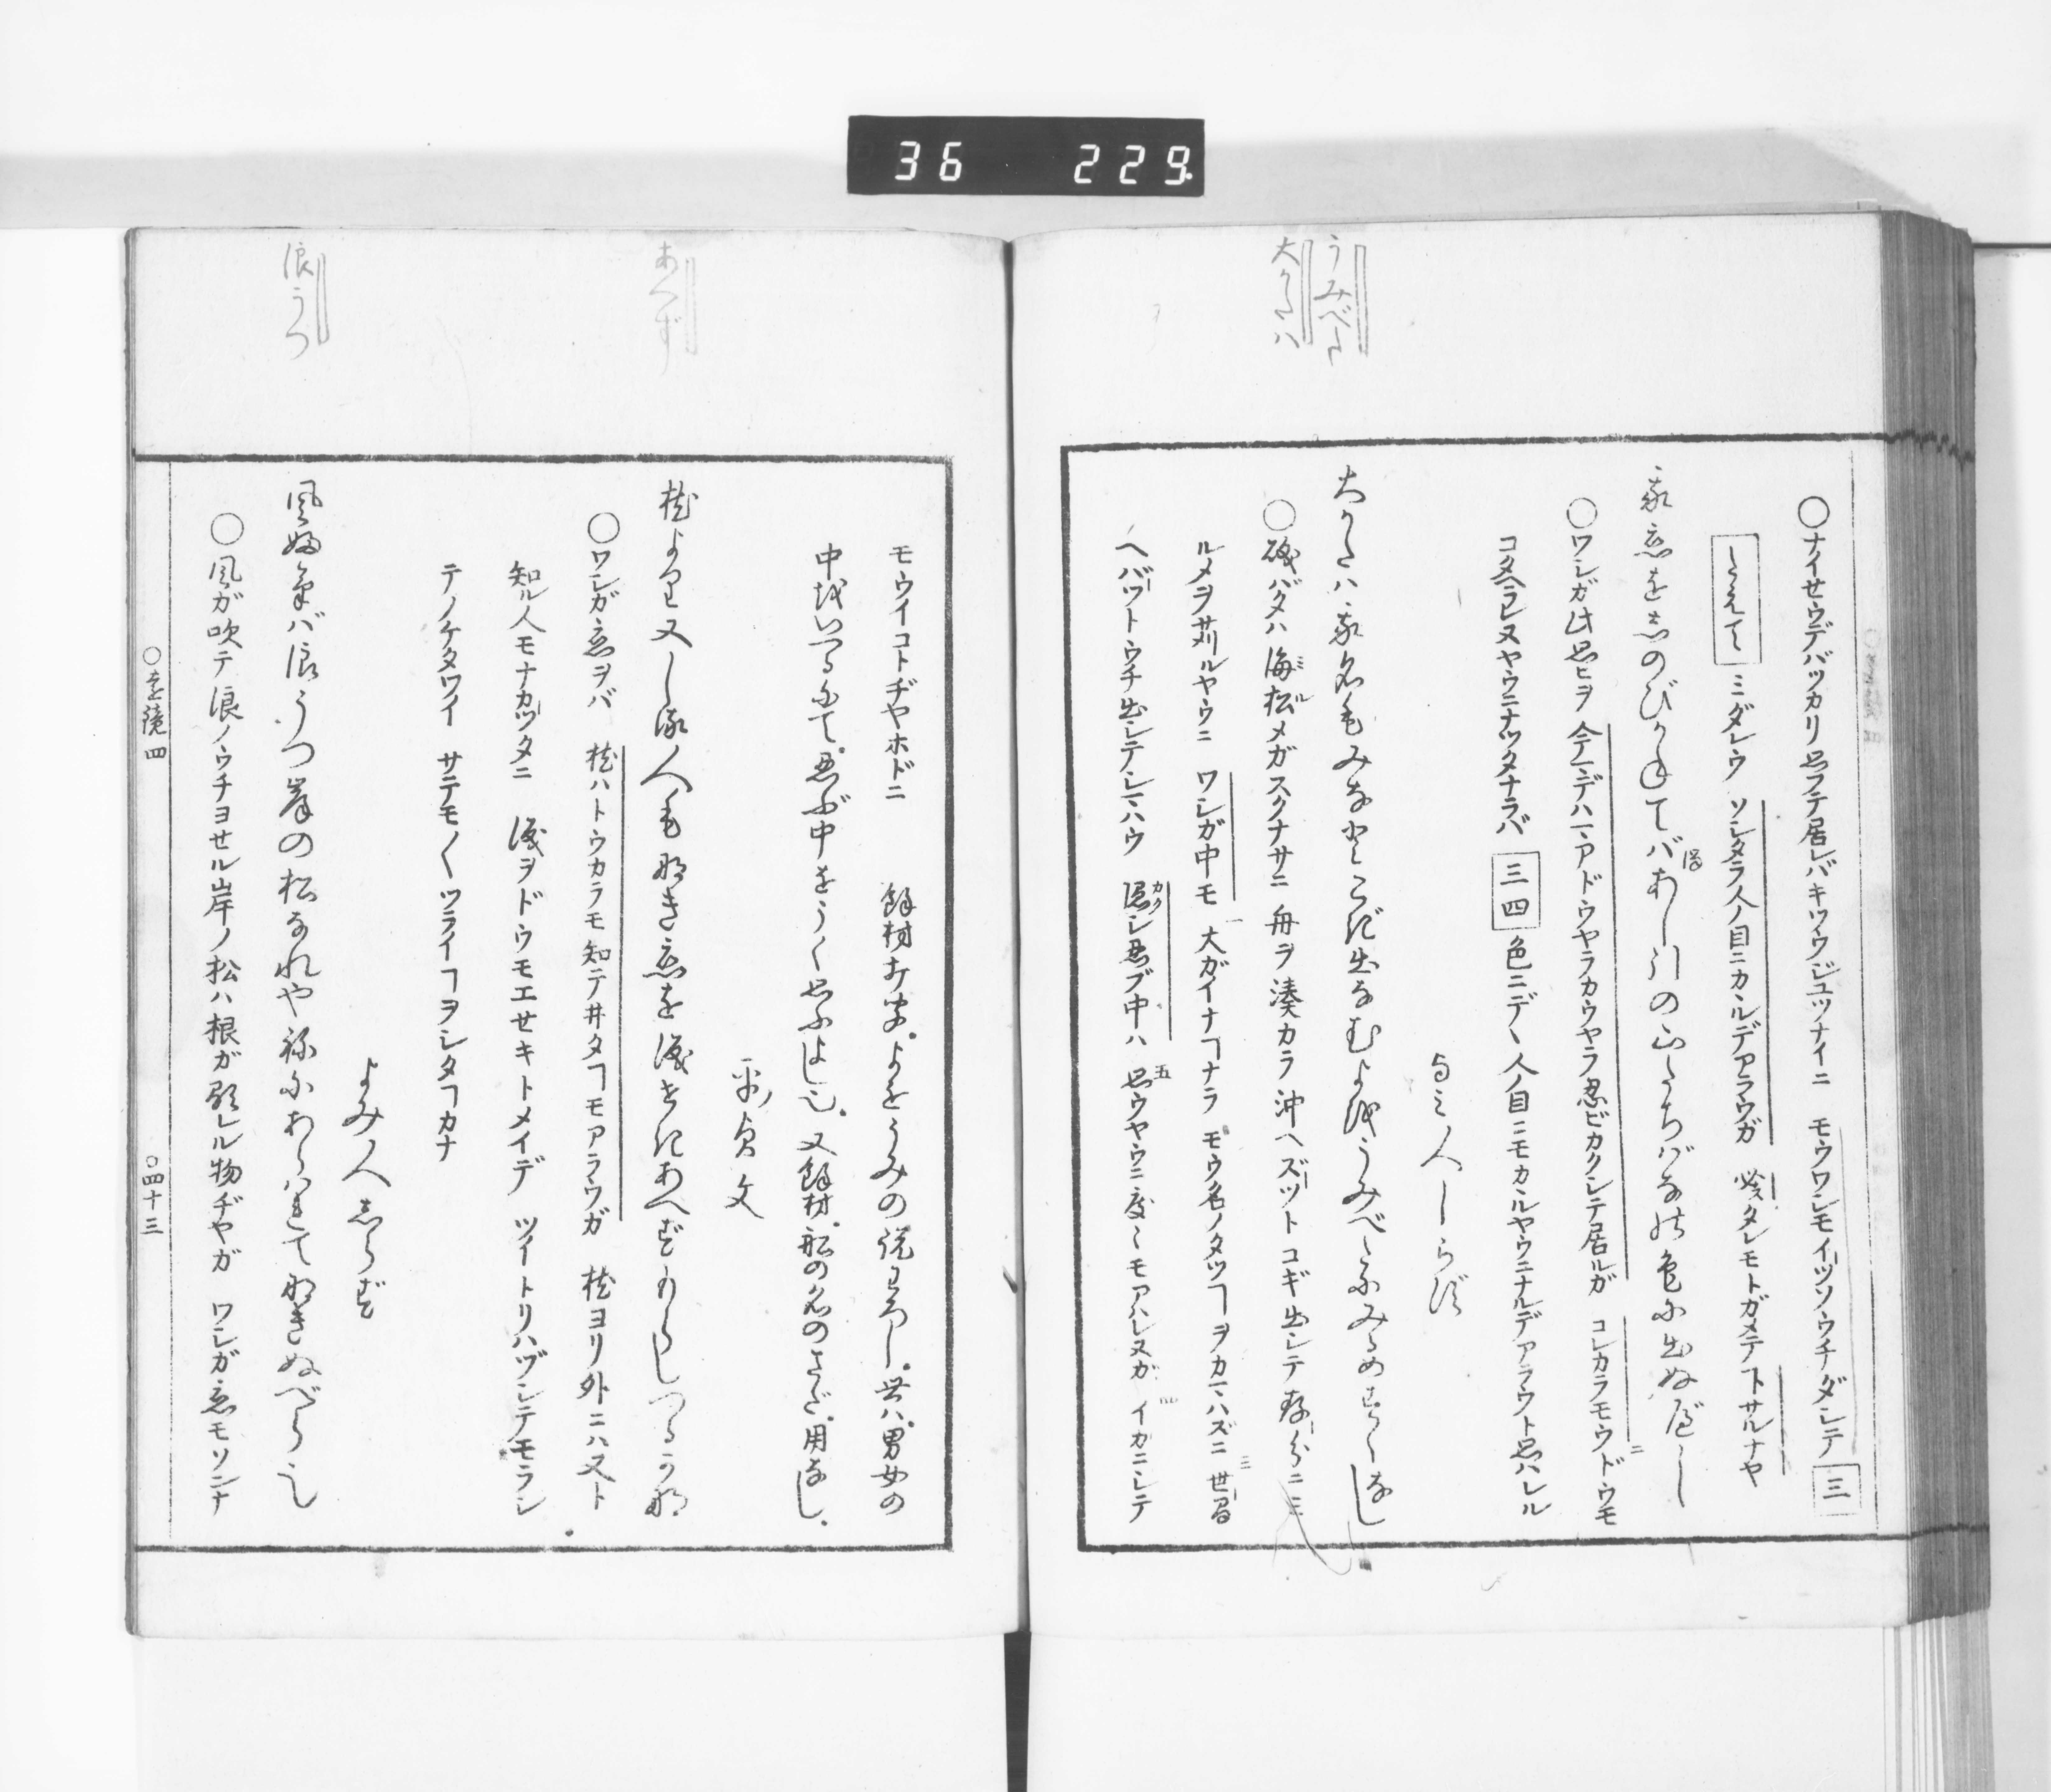 36 229
うみべた
大かたハ
○ナイセウデバッカリ思フテ居レバキツウジュツナイニ モウワシモイッソウチダシテ 三
したえて ミダレウ ソシタラ人ノ目ニカヽルデアラウガ 必タレモトガメテ下サルナヤ
我恋をしのびかねてバあし引の山たちばなの色に出ぬべし
○ワシガ此思ヒヲ 今マデハマアドウヤラカウヤラ忍ビカクシテ居ルガ コレカラモウドウモ
コタヘラレヌヤウニナッタナラバ 三四 色ニデヽ人ノ目ニモカヽルヤウニナルデアラウト思ハレル
よみ人しらず
大かたハ我名もみなとこぎ出なむよをうみべたにみるめすくなし
○磯バタハ海松メガスクナサニ 舟ヲ湊カラ沖ヘズットコギ出シテ存分ニミ
ルメヲ苅ルヤウニ ワシガ中モ 大ガイナヿナラ モウ名ノタツヿヲカマハズニ 世間
ヘバットウチ出シテシマハウ 隠シ忍ブ中ハ 思ウヤウニ度〻モアハレヌガ イカニシテ
あへず
浪うつ
モウイコトヂヤホドニ 餘材打聞。よをうみの説わろし。世ハ。男女の
中をいへるにて。忍ぶ中をうく思ふよし也。又餘材。船の名のさだ。用なし。
平ノ貞文
枕より又しる人もなき恋を涙せきあへずもらしつるかな
○ワシガ恋ヲバ 枕ハトウカラモ知テ井タヿモアラウガ 枕ヨリ外ニハ又ト
知ル人モナカッタニ 涙ヲドウモエセキトメイデ ツイトリハヅシテモラシ
テノケタワイ サテモ〳〵ツライヿヲシタヿカナ
よみ人しらず
風ふけバ浪うつ岸の松なれやねにあらハれてなきぬべら也
○風ガ吹テ浪ノウチヨセル岸ノ松ハ根ガ顕レル物ヂヤガ ワシガ恋モソンナ
○遠鏡四 ○四十三